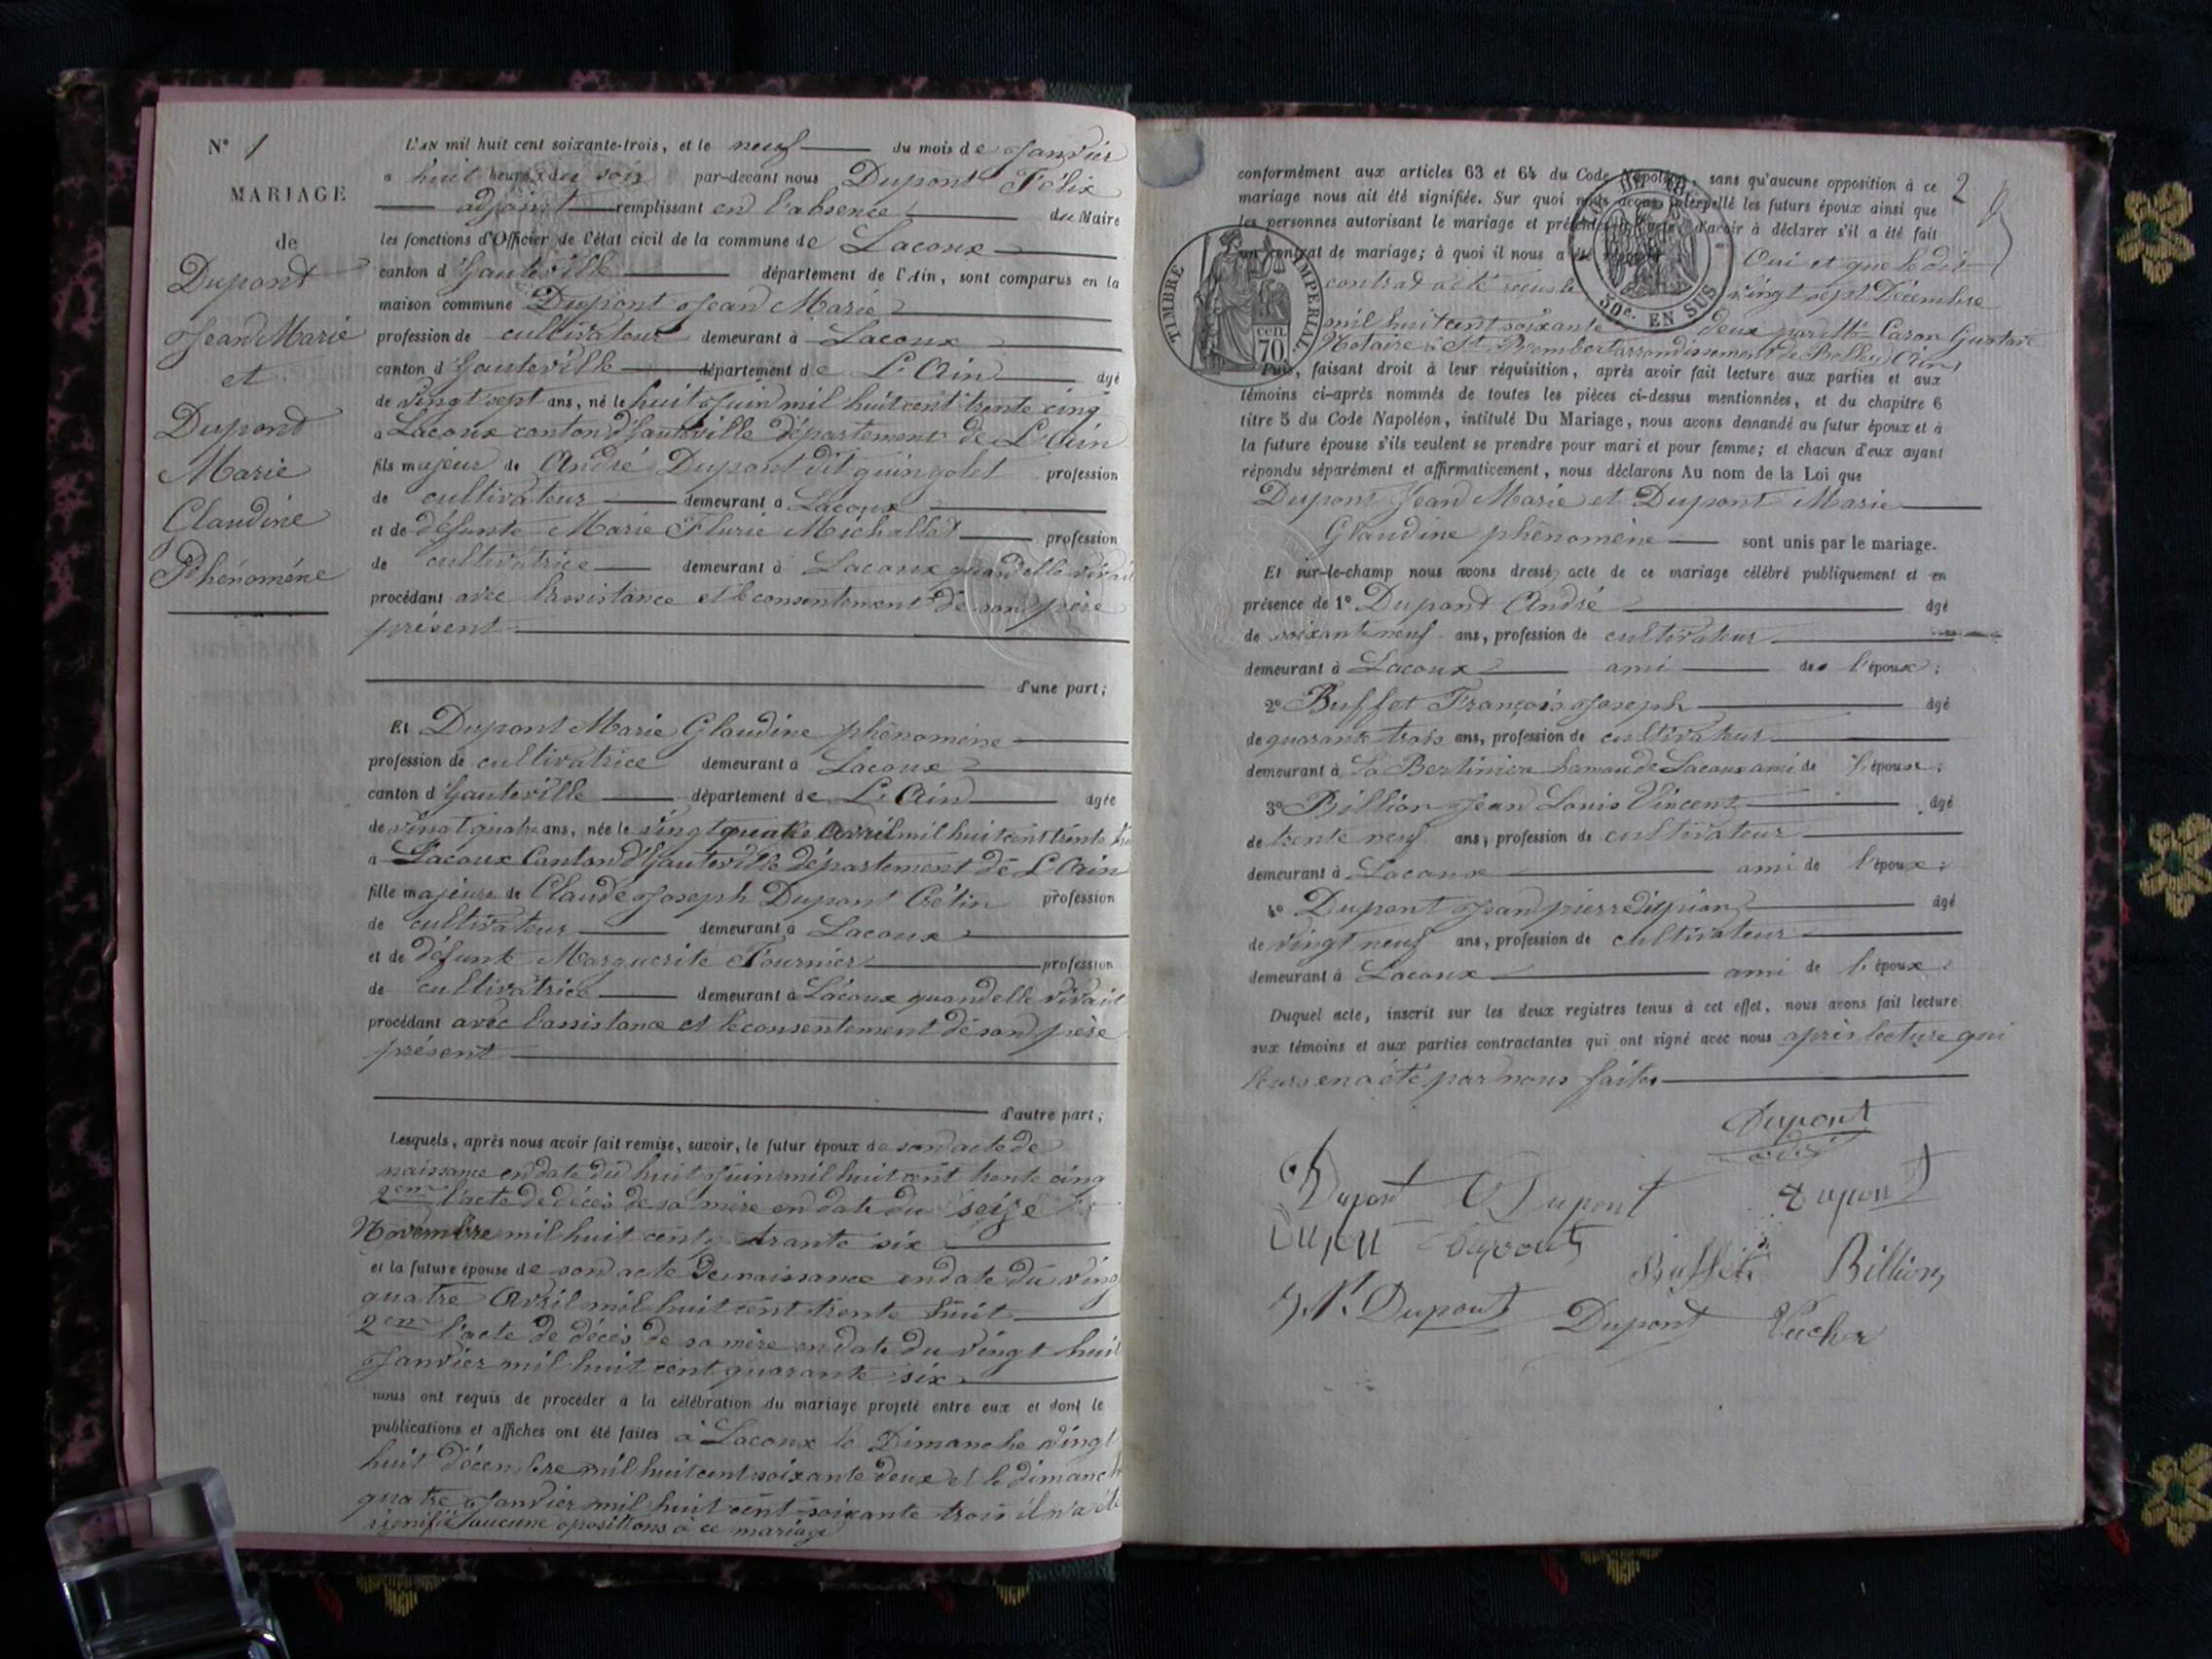 N° 1
MARIAGE
de
Dupont
Jean Marie
et
Dupont
Marie
Glaudine
Phénoméne
L'AN mil huit cent soixante-trois, et le neuf du mois de Janvier
a huit heures du soir par-devant nous Dupont Félix
adjoint remplissant en l'absence du Maire
les fonctions d'Officier de l'état civil de la commune de Lacoux
canton d'hauteville département de l'Ain, sont comparus en la
maison commune Dupont Jean Marie
profession de cultivateur demeurant à Lacoux
canton d'hauteville département de L'Ain âgé
de vingt sept ans, né le huit Juin mil huit cent trente cinq
a Lacoux canton d'hauteville département de L'Ain
fils majeur de André Dupont dit guingolet profession
de cultivateur demeurant a Lacoux
et de défunte Marie Flurie Michallet profession
de cultivatrice demeurant à Lacoux quand elle vivait
procédant avec l'assistance et le consentement de son père
présent
d'une part;
Et Dupont Marie Glaudine phénoméne
profession de cultivatrice demeurant a Lacoux
canton d'hauteville département de L'Ain âgée
de vingt quatre ans, née le vingt quatre Avril mil huit cent trente huit
a Lacoux Canton d'hauteville département de L'Ain
fille majeure de Claude Joseph Dupont Crétin profession
de cultivateur demeurant a Lacoux
et de défunte Marguerite Fournier profession
de cultivatrice demeurant à Lacoux quand elle vivait
procédant avec l'assistance et le consentement de son père
présent
d'autre part;
Lesquels, après nous avoir fait remise, savoir, le futur époux de son acte de
naissance en date du huit Juin mil huit cent trente cinq
2eme l'acte de décès de sa mère en date du seize
Novembre mil huit cent trante six
et la future épouse de son acte de naissance en date du vingt
quatre Avril mil huit cent trente huit
2eme l'acte de décès de sa mère en date du vingt huit
Janvier mil huit cent quarante six
nous ont requis de procéder à la célébration du mariage projeté entre eux et dont les
publications et affiches ont été faites à Lacoux le Dimanche vingt
huit décembre mil huit cent soixante deux et le dimanche
quatre Janvier mil huit cent soixante trois il n'a été
signifié aucune opositions à ce mariage
2
conformément aux articles 63 et 64 du Code Napoléon, sans qu'aucune opposition à ce
mariage nous ait été signifiée. Sur quoi nous avons interpellé les futurs époux ainsi que
les personnes autorisant le mariage et présentes à l'acte d'avoir à déclarer s'il a été fait
un contrat de mariage; à quoi il nous a été répondu Oui et que le dit
contrat a été recu le vingt sept Décembre
mil huit cent soixante deux par Me Caron Gustave
Notaire à St Rembert arrondissement de Belley (Ain)
TIMBRE IMPERIAL
cen. 70
50c. EN SUS
Puis, faisant droit à leur réquisition, après avoir fait lecture aux parties et aux
témoins ci-après nommés de toutes les pièces ci-dessus mentionnées, et du chapitre 6
titre 5 du Code Napoléon, intitulé Du Mariage, nous avons demandé au futur époux et à
la future épouse s'ils veulent se prendre pour mari et pour femme; et chacun d'eux ayant
répondu séparément et affirmativement, nous déclarons Au nom de la Loi que
Dupont Jean Marie et Dupont Marie
Glaudine phénoméne sont unis par le mariage.
Et sur-le-champ nous avons dressé acte de ce mariage célébré publiquement et en
présence de 1° Dupont André âgé
de soixante neuf ans, profession de cultivateur
demeurant à Lacoux ami de l'époux;
2° Buffet François Joseph âgé
de quarante trois ans, profession de cultivateur
demeurant à La Bertinière hamau de Lacoux ami de l'époux;
3° Billion Jean Louis Vincent âgé
de trente neuf ans, profession de cultivateur
demeurant à Lacoux ami de l'époux;
4° Dupont Jean pierre âgé
de vingt neuf ans, profession de cultivateur
demeurant à Lacoux ami de l'époux.
Duquel acte, inscrit sur les deux registres tenus à cet effet, nous avons fait lecture
aux témoins et aux parties contractantes qui ont signé avec nous après lecture qui
leurs en a été par nous faite
Dupont
Dupont Dupont Dupont
Dupont Buffet Billion
J. P. Dupont Dupont Vucher